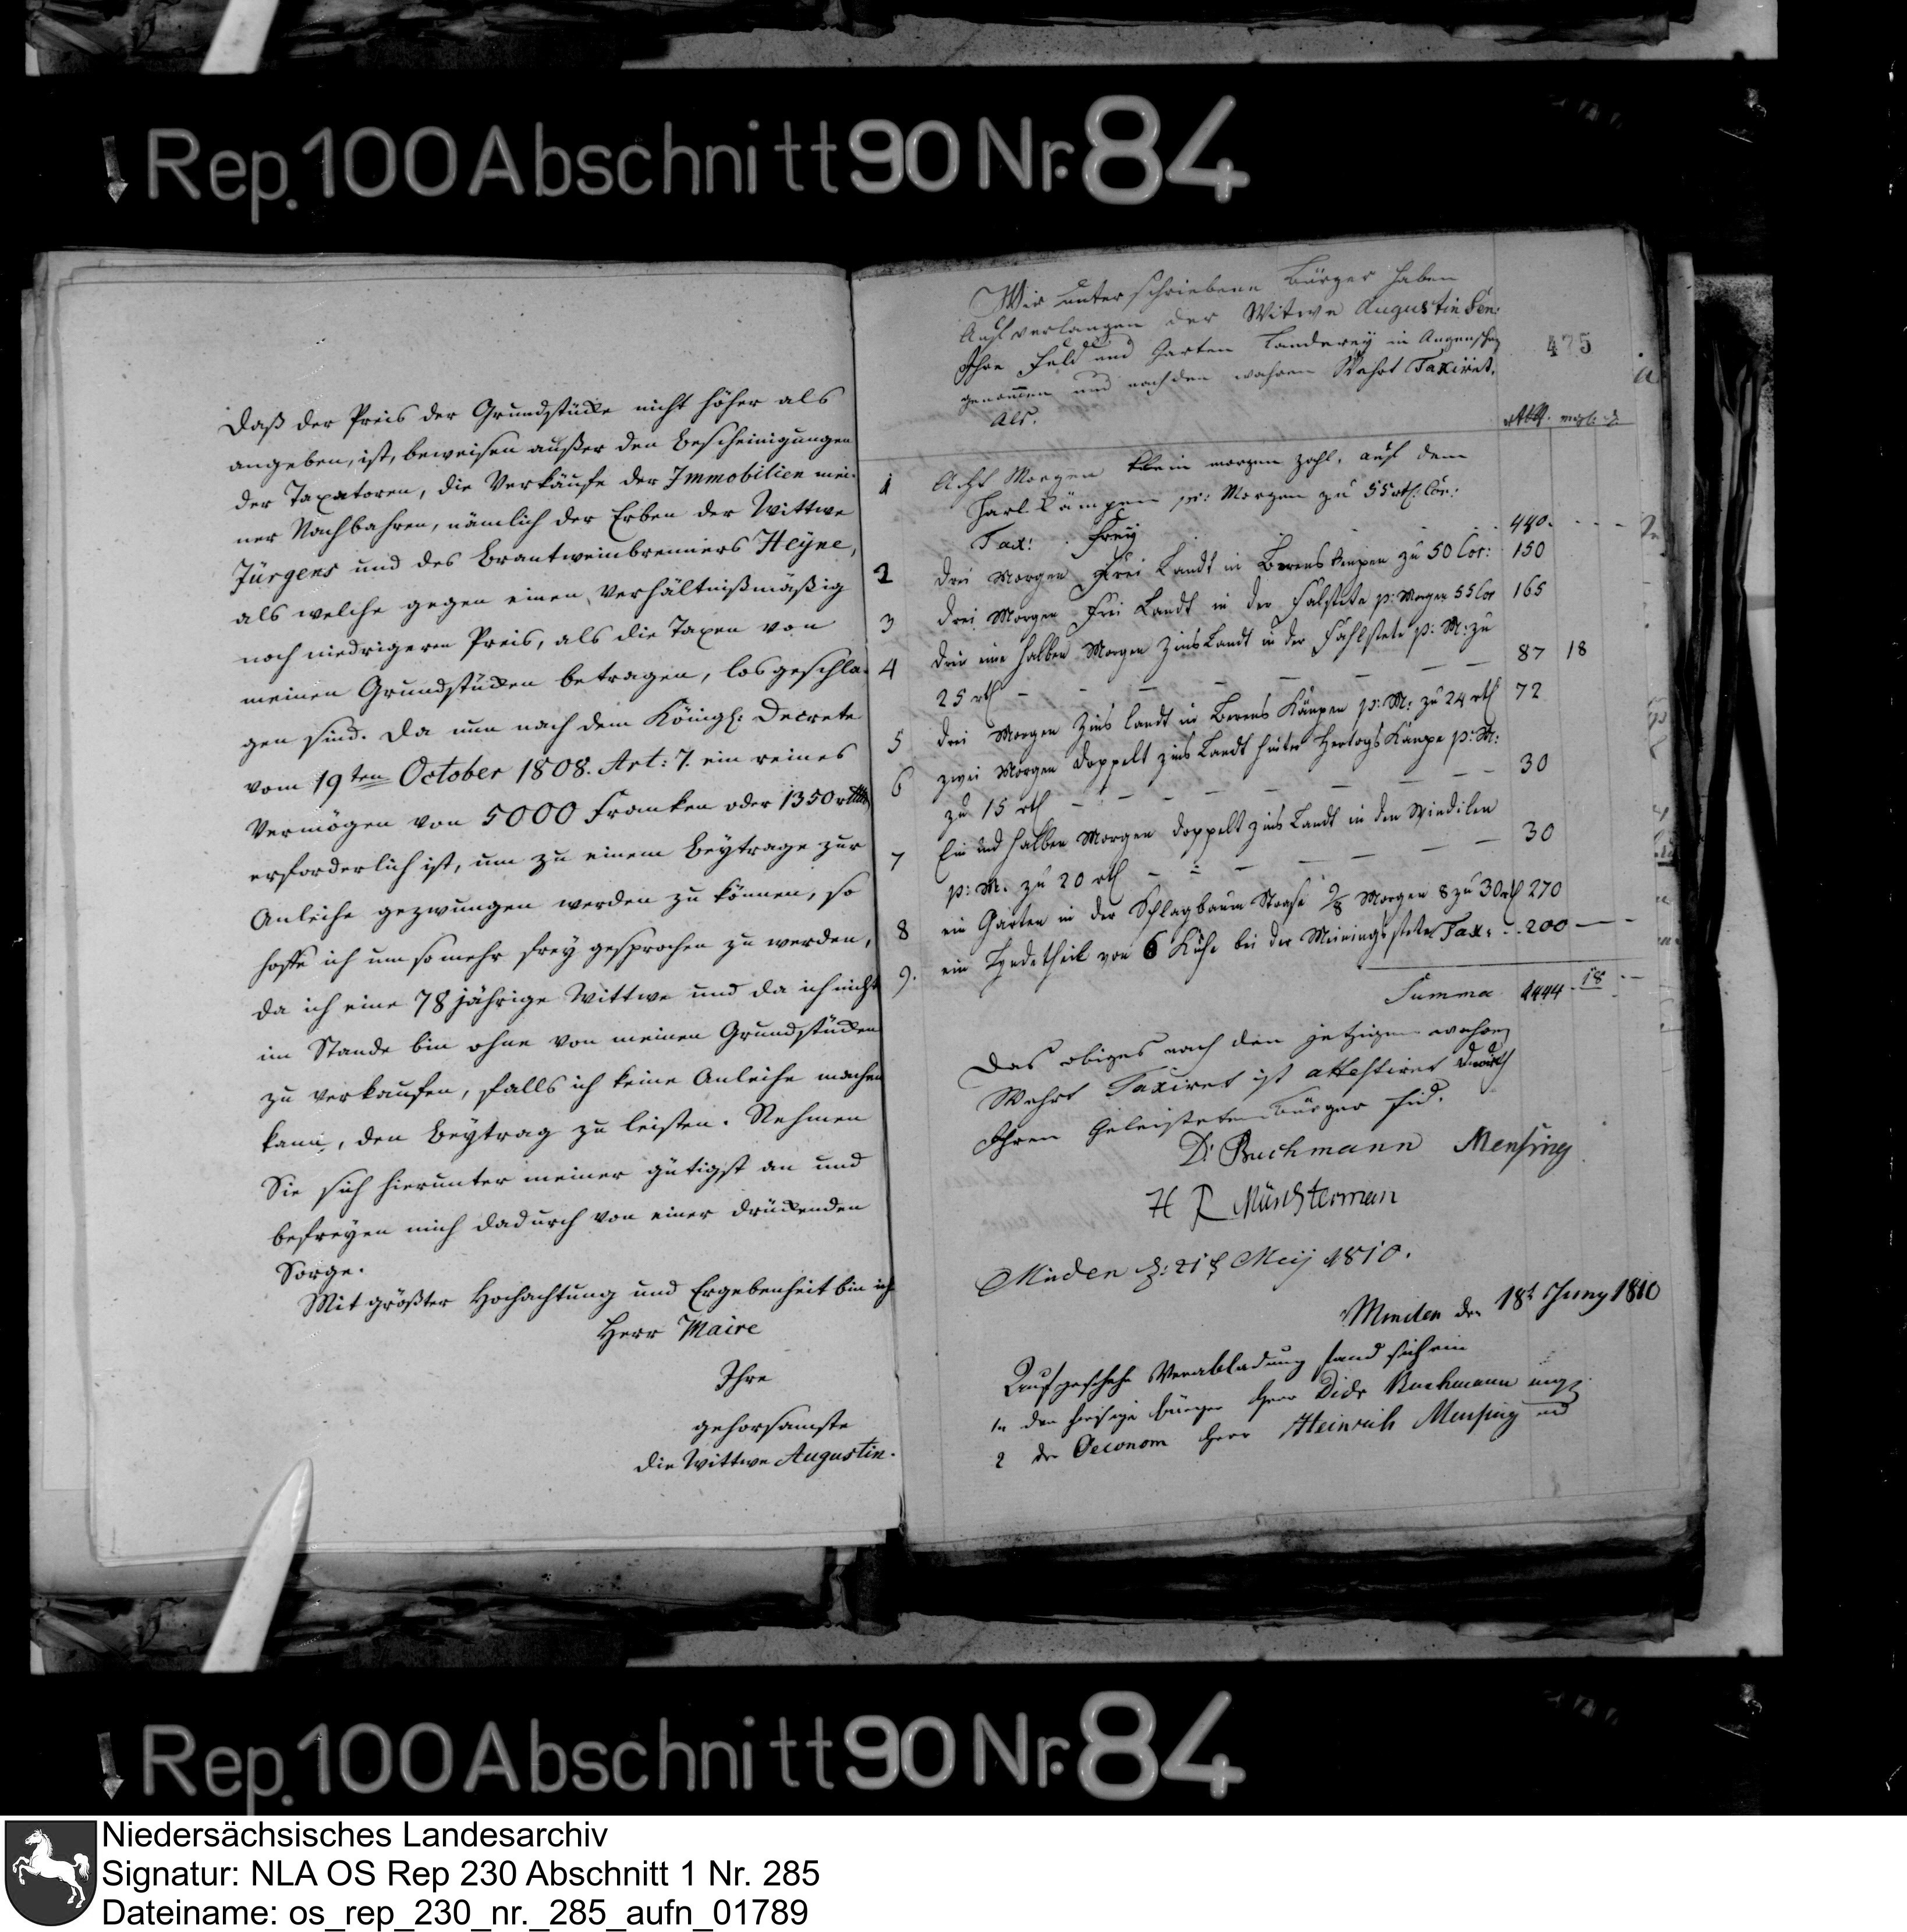 Rep. 100 Abschnitt 90 Nr. 84
Daß der Preis der Grundstücke nicht höher als
angeben, ist, beweisen außer den Bescheinigungen
der Taxatoren, die Verkäufe der Immobilien mei-
ner Nachbahren, nämlich der Erben der Wittwe
Jürgens und des Brantweinbrenners Heyne,
als welche gegen einen Verhältnißmäßig
noch niedrigeren Preis, als die Taxen von
meinen Grundstücken betragen, losgeschla-
gen sind. Da nun nach dem Königl: Decrete
vom 19ten October 1808. Art: 7. ein reines
Vermögen von 5000 Franken oder 1350 rthlr
erforderlich ist, um zu einem Beytrage zur
Anleihe gezwungen werden zu können, so
hoffe ich um so mehr frey gesprochen zu werden,
da ich eine 78 jährige Wittwe und da ich nicht
im Stande bin ohne von meinen Grundstücken
zu verkaufen, falls ich keine Anleihe machen
kann, den Beytrag zu leisten. Nehmen
Sie sich hierunter meiner gütigst an und
befreyen mich dadurch von einer drückenden
Sorge.
Mit größter Hochachtung und Ergebenheit bin ich
Herr Maire
Ihre
gehorsamste
die Wittwe Augustin.
Wir unterschriebene Bürger haben
Auf verlangen der Witwe Augustin Sen:
Ihre Feld und Garten Länderey in Augenschein
genommen und nach den wahren Wehrt Taxiret.
Als.
475
1 Acht Morgen klein morgen zahl, auf dem
Harl kämpen pr: Morgen zu 55 rth: Cor:
Tax: Frey 440.
2 drei Morgen Frei Landt in Berens kenpen zu 50 Cor: 150
3 drei Morgen Frei Landt in der Halstete p: Morgen 55 Cor 165
4 drei eine halben Morgen Zins Landt in der Hahlstete p: M: zu
25 rth 87 18
5 drei Morgen Zins landt in Berens Kämpen p: M: zu 24 rth 72
6 zwei Morgen doppelt zins Landt hinter Hertogs Kampe p: M:
zu 15 rth 30
7 Ein und halben Morgen doppelt zins Landt in den Windilen
p: M. zu 20 rth 30
8 ein Garten in der Schlagbaum Strase 9/8 Morgen 8 zu 30 rth 270
9. ein theil von 6 Kühe bei der Tax: 200
Summa 1444 18
Das obiges nach den jetzigen wahren
Wehrt Taxiret ist attestiret durch
Ihren Geleisteten Bürger Eid.
D: Buchmann Mensing
H R Münsterman
Minden d: 21t Meij 1810.
Minden den 18t Juny 1810
Auf geschehe Verabladung fand sich ein
1. der hiesige bürger Herr Didr Buchmann
2 der Oeconom Herr Heinrich Mensing und
Rep. 100 Abschnitt 90 Nr. 84
Niedersächsisches Landesarchiv
Signatur: NLA OS Rep 230 Abschnitt 1 Nr. 285
Dateiname: os_rep_230_nr._285_aufn_01789